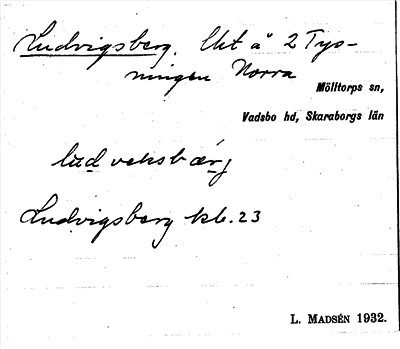 Ludvigsberg. Utt å 2 Tys-
ningen Norra
Mölltorps sn,
Vadsbo hd, Skaraborgs län
ludveksbærj
Ludvigsberg kb. 23
L. MADSÉN 1932.